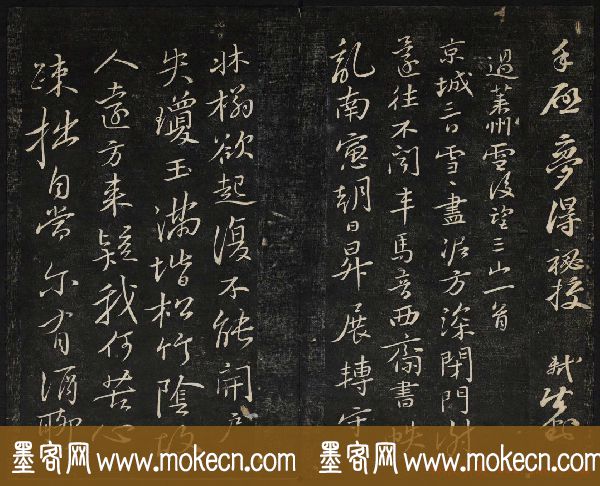 手啟夢得祕校 軾
過萊州雪後望三山一首
京城三日雪〻盡泥方深閉門謝
還往不聞車馬音西齋書帙
亂南窓朝日昇展轉守
牀榻欲起復不能開戶
失瓊玉滿堦松竹陰故
人遠方来疑我何苦心
疎拙自當尔有酒聊
墨客网 www.mokecn.com 墨客网 www.mokecn.com